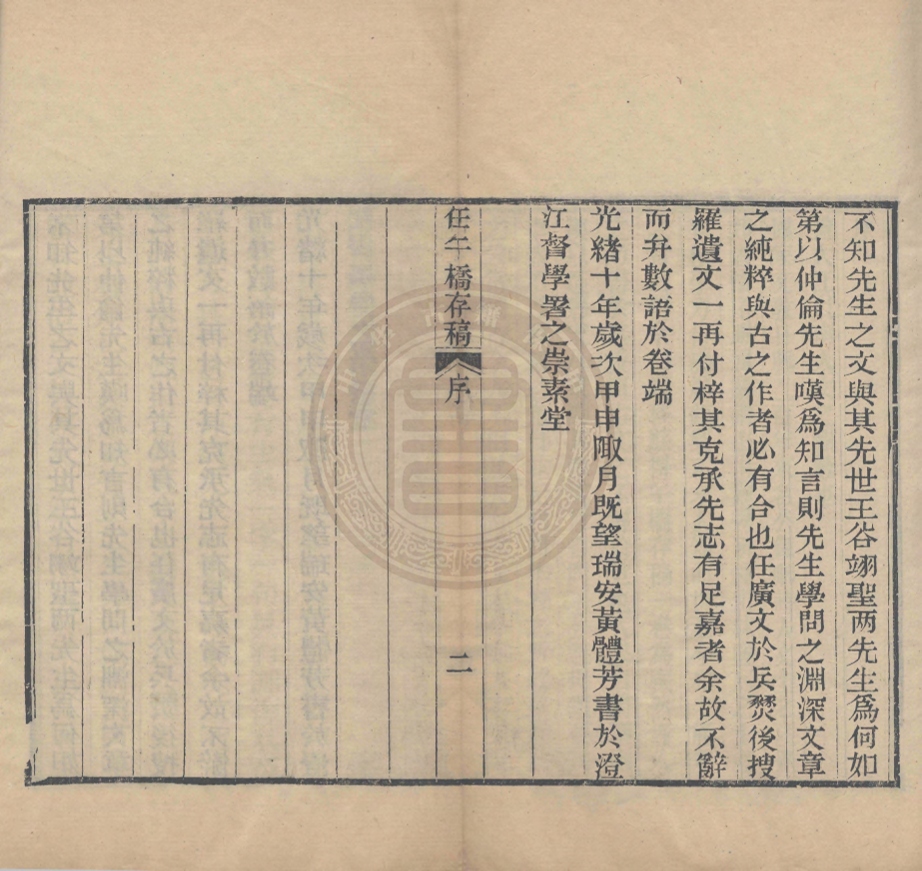 不知先生之文與其先世王谷翊聖两先生爲何如
第以仲倫先生嘆爲知言則先生學問之淵深文章
之純粹與古之作者必有合也任廣文於兵燹後搜
羅遺文一再付梓其克承先志有足嘉者余故不辭
而弁數語於卷端
光緒十年歲次甲申陬月既望瑞安黃體芳書於澄
江督學署之崇素堂
任午橋存稿 序 二